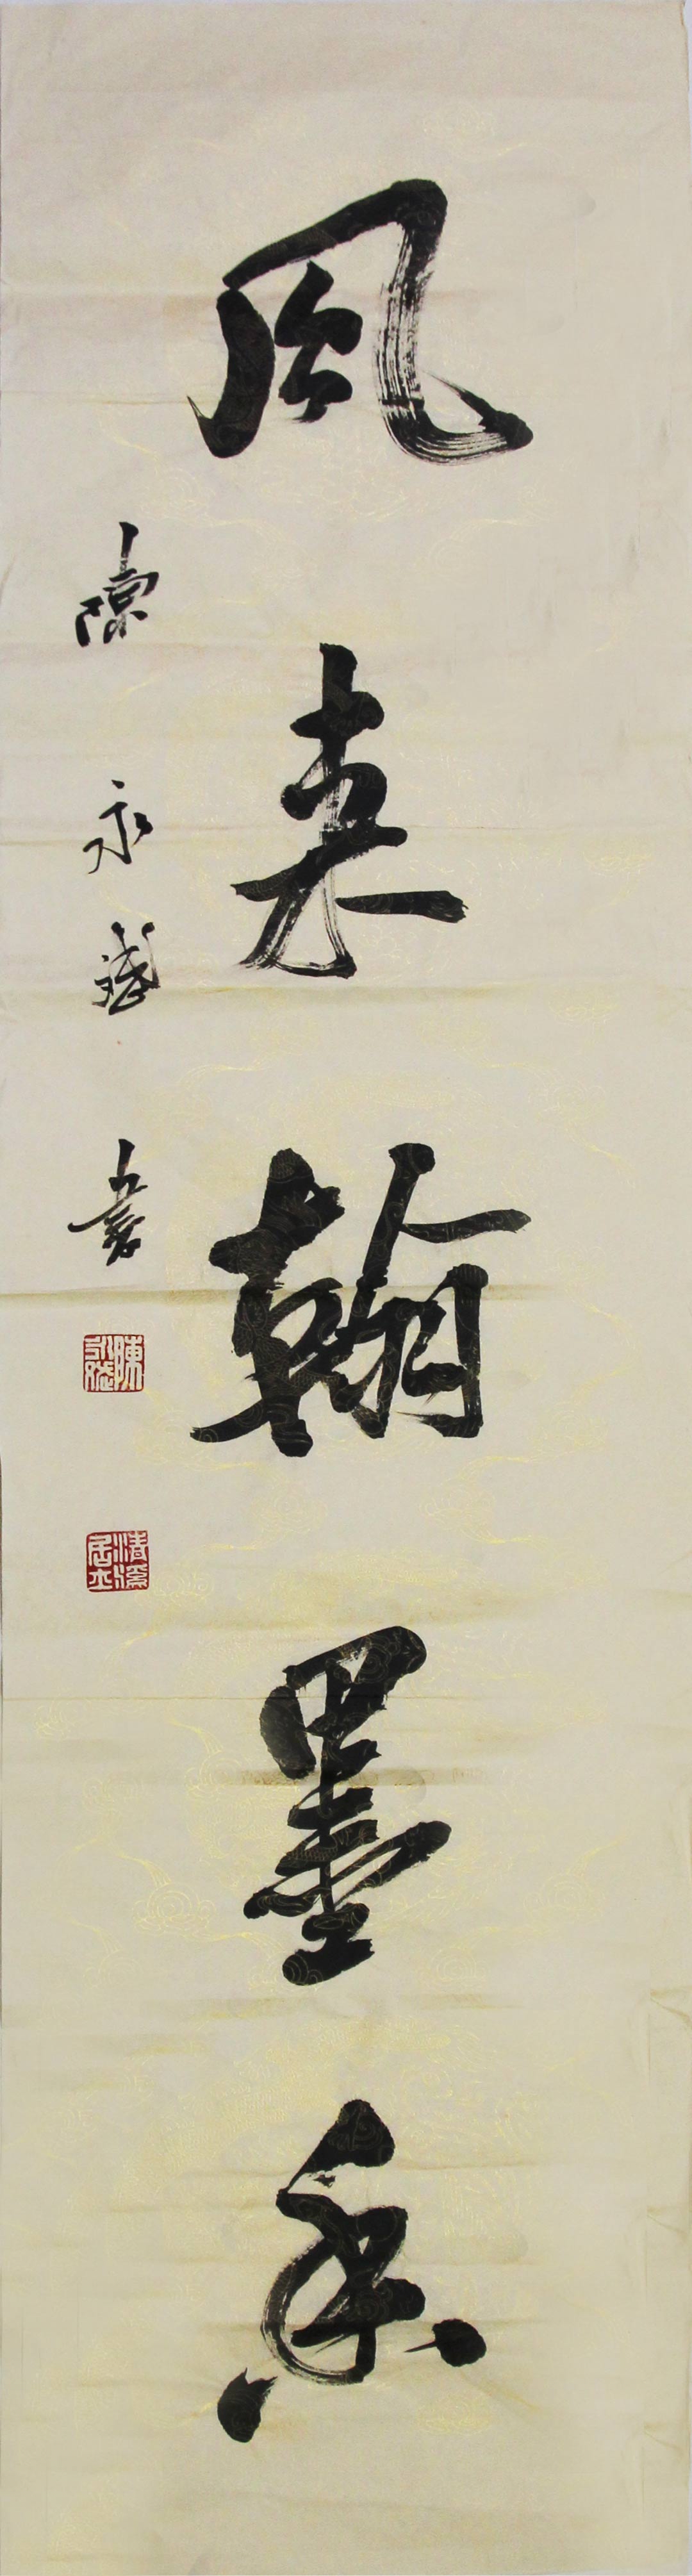 風來翰墨香
陳永斌書
陳永斌
清溪居士